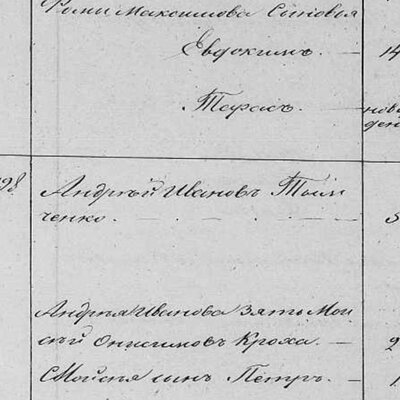 Фомы Максимова Сыновья
Евдокимъ. — 14
Тарасъ. — ново
ден
198 Андрей Ивановъ Толм
ченко. — 5
Андрея Иванова зять Мои
сѣй Онисимовъ Кроха. — 2
Моисѣя сынъ Петръ. — 1